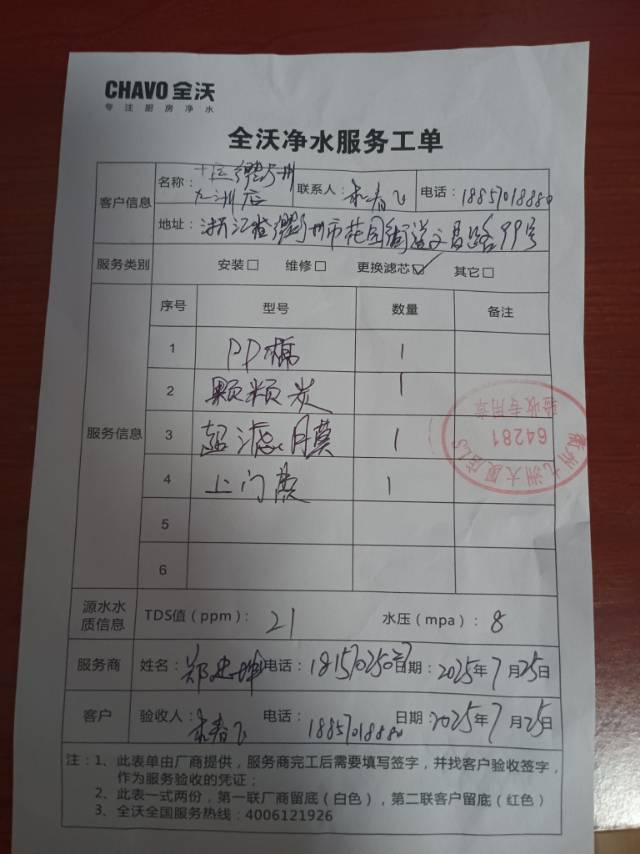 CHAVO 全沃
专注厨房净水
全沃净水服务工单
客户信息
名称: 衢州九洲店 联系人: 春飞 电话: 18857018880
地址: 浙江省衢州市花园街道文昌路99号
服务类别 安装□ 维修□ 更换滤芯☑ 其它□
服务信息
序号 型号 数量 备注
1 PP棉 1
2 颗颗炭 1
3 超滤膜 1
4 上门费 1
5
6
衢州九洲大厦店LS
64281
验收专用章
源水水质信息 TDS值(ppm): 21 水压(mpa): 8
服务商 姓名: 郑忠坤 电话: 日期: 2025年7月25日
客户 验收人: 春飞 电话: 18857018880 日期: 2025年7月25日
注:1、此表单由厂商提供,服务商完工后需要填写签字,并找客户验收签字,
作为服务验收的凭证;
2、此表一式两份,第一联厂商留底(白色),第二联客户留底(红色)
3、全沃全国服务热线:4006121926